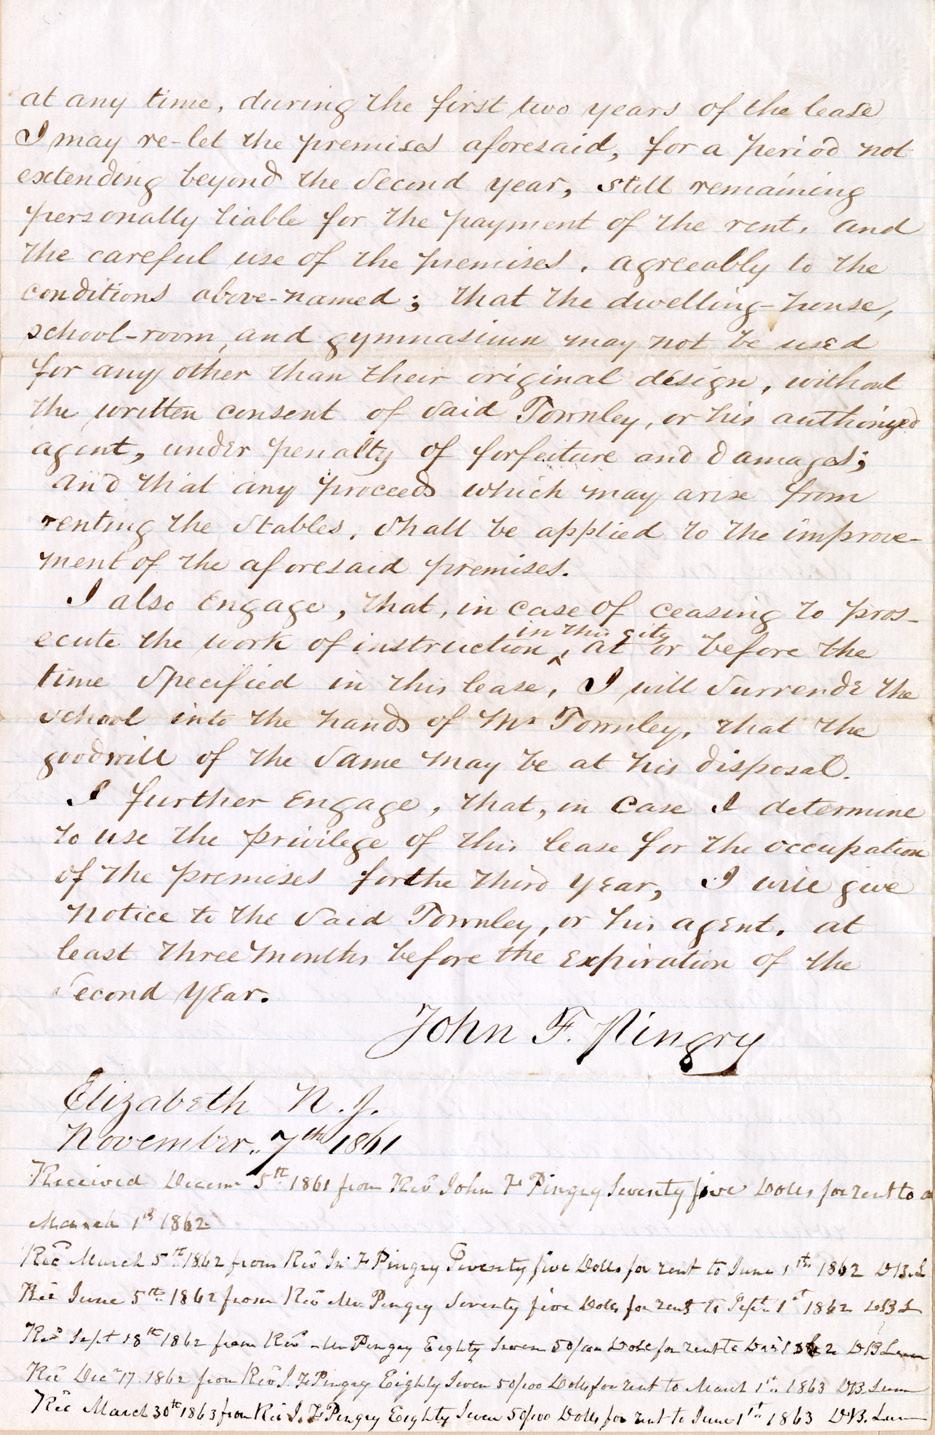 at any time, during the first two years of the lease
I may re-let the premises aforesaid, for a period not
extending beyond the second year, still remaining
personally liable for the payment of the rent, and
the careful use of the premises, agreeably to the
conditions above-named; that the dwelling-house,
school-room, and gymnasium may not be used
for any other than their original design, without
the written consent of said Townley, or his authorized
agent, under penalty of forfeiture and damages;
and that any proceeds which may arise from
renting the stables, shall be applied to the improve-
ment of the aforesaid premises.
I also engage, that, in case of ceasing to pros-
ecute the work of instruction in this city, at or before the
time specified in this lease, I will surrender the
school into the hands of Mr Townley, that the
goodwill of the same may be at his disposal.
I further engage, that, in case I determine
to use the privilege of this lease for the occupation
of the premises for the third year, I will give
notice to the said Townley, or his agent, at
least three months before the expiration of the
second year.
John F. Pingry
Elizabeth N.J.
November 7th 1861
Received Decem 5th 1861 from Rev John F Pingry Seventy five Dolls for rent to
March 1st 1862
Rec March 5th 1862 from Rev Jn F Pingry Seventy five Dolls for rent to June 1st 1862
Rec June 5th 1862 from Rev Mr Pingry Seventy five Dolls for rent to Sept 1st 1862
Rec Sept 18th 1862 from Rev Mr Pingry Eighty Seven 50/00 Dolls for rent to
Rec Dec 17 1862 from Rev J. F Pingry Eighty Seven 50/00 Dolls for rent to March 1st 1863
Rec March 30th 1863 from Rev J. F Pingry Eighty Seven 50/00 Dolls for rent to June 1st 1863